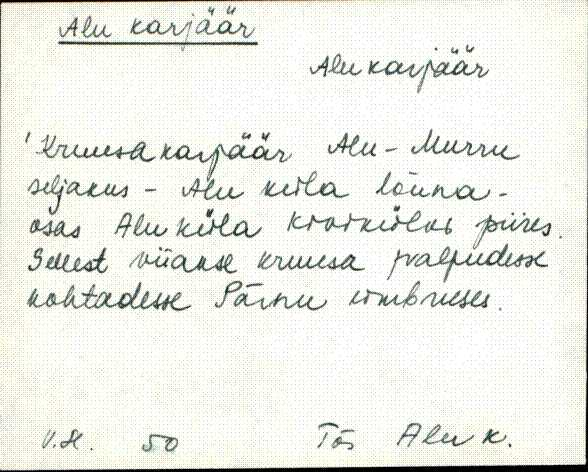 Alu karjäär
Alu karjäär
'Kruusakarjäär Alu-Murru
seljakus - Alu küla lõuna-
osas Alu küla kivikülvi piires.
Sellest viiakse kruusa paljudesse
kohtadesse Pärnu ümbruses.
V.H. 50 Tõs Alu k.